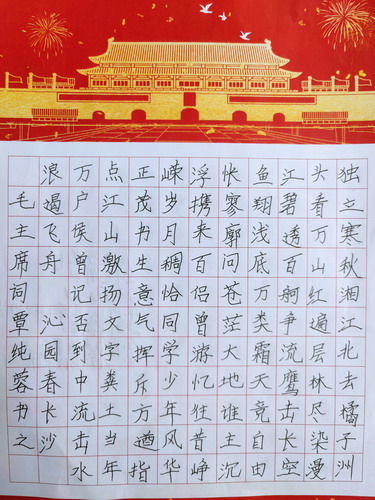 独立寒秋湘江北去橘子洲
头看万山红遍层林尽染漫
江碧透百舸争流鹰击长空
鱼翔浅底万类霜天竟自由
怅寥廓问苍茫大地谁主沉
浮携来百侣曾游忆往昔峥
嵘岁月稠恰同学少年风华
正茂书生意气挥斥方遒指
点江山激扬文字粪土当年
万户侯曾记否到中流击水
浪遏飞舟 沁园春长沙
毛主席词覃纯蓉书之